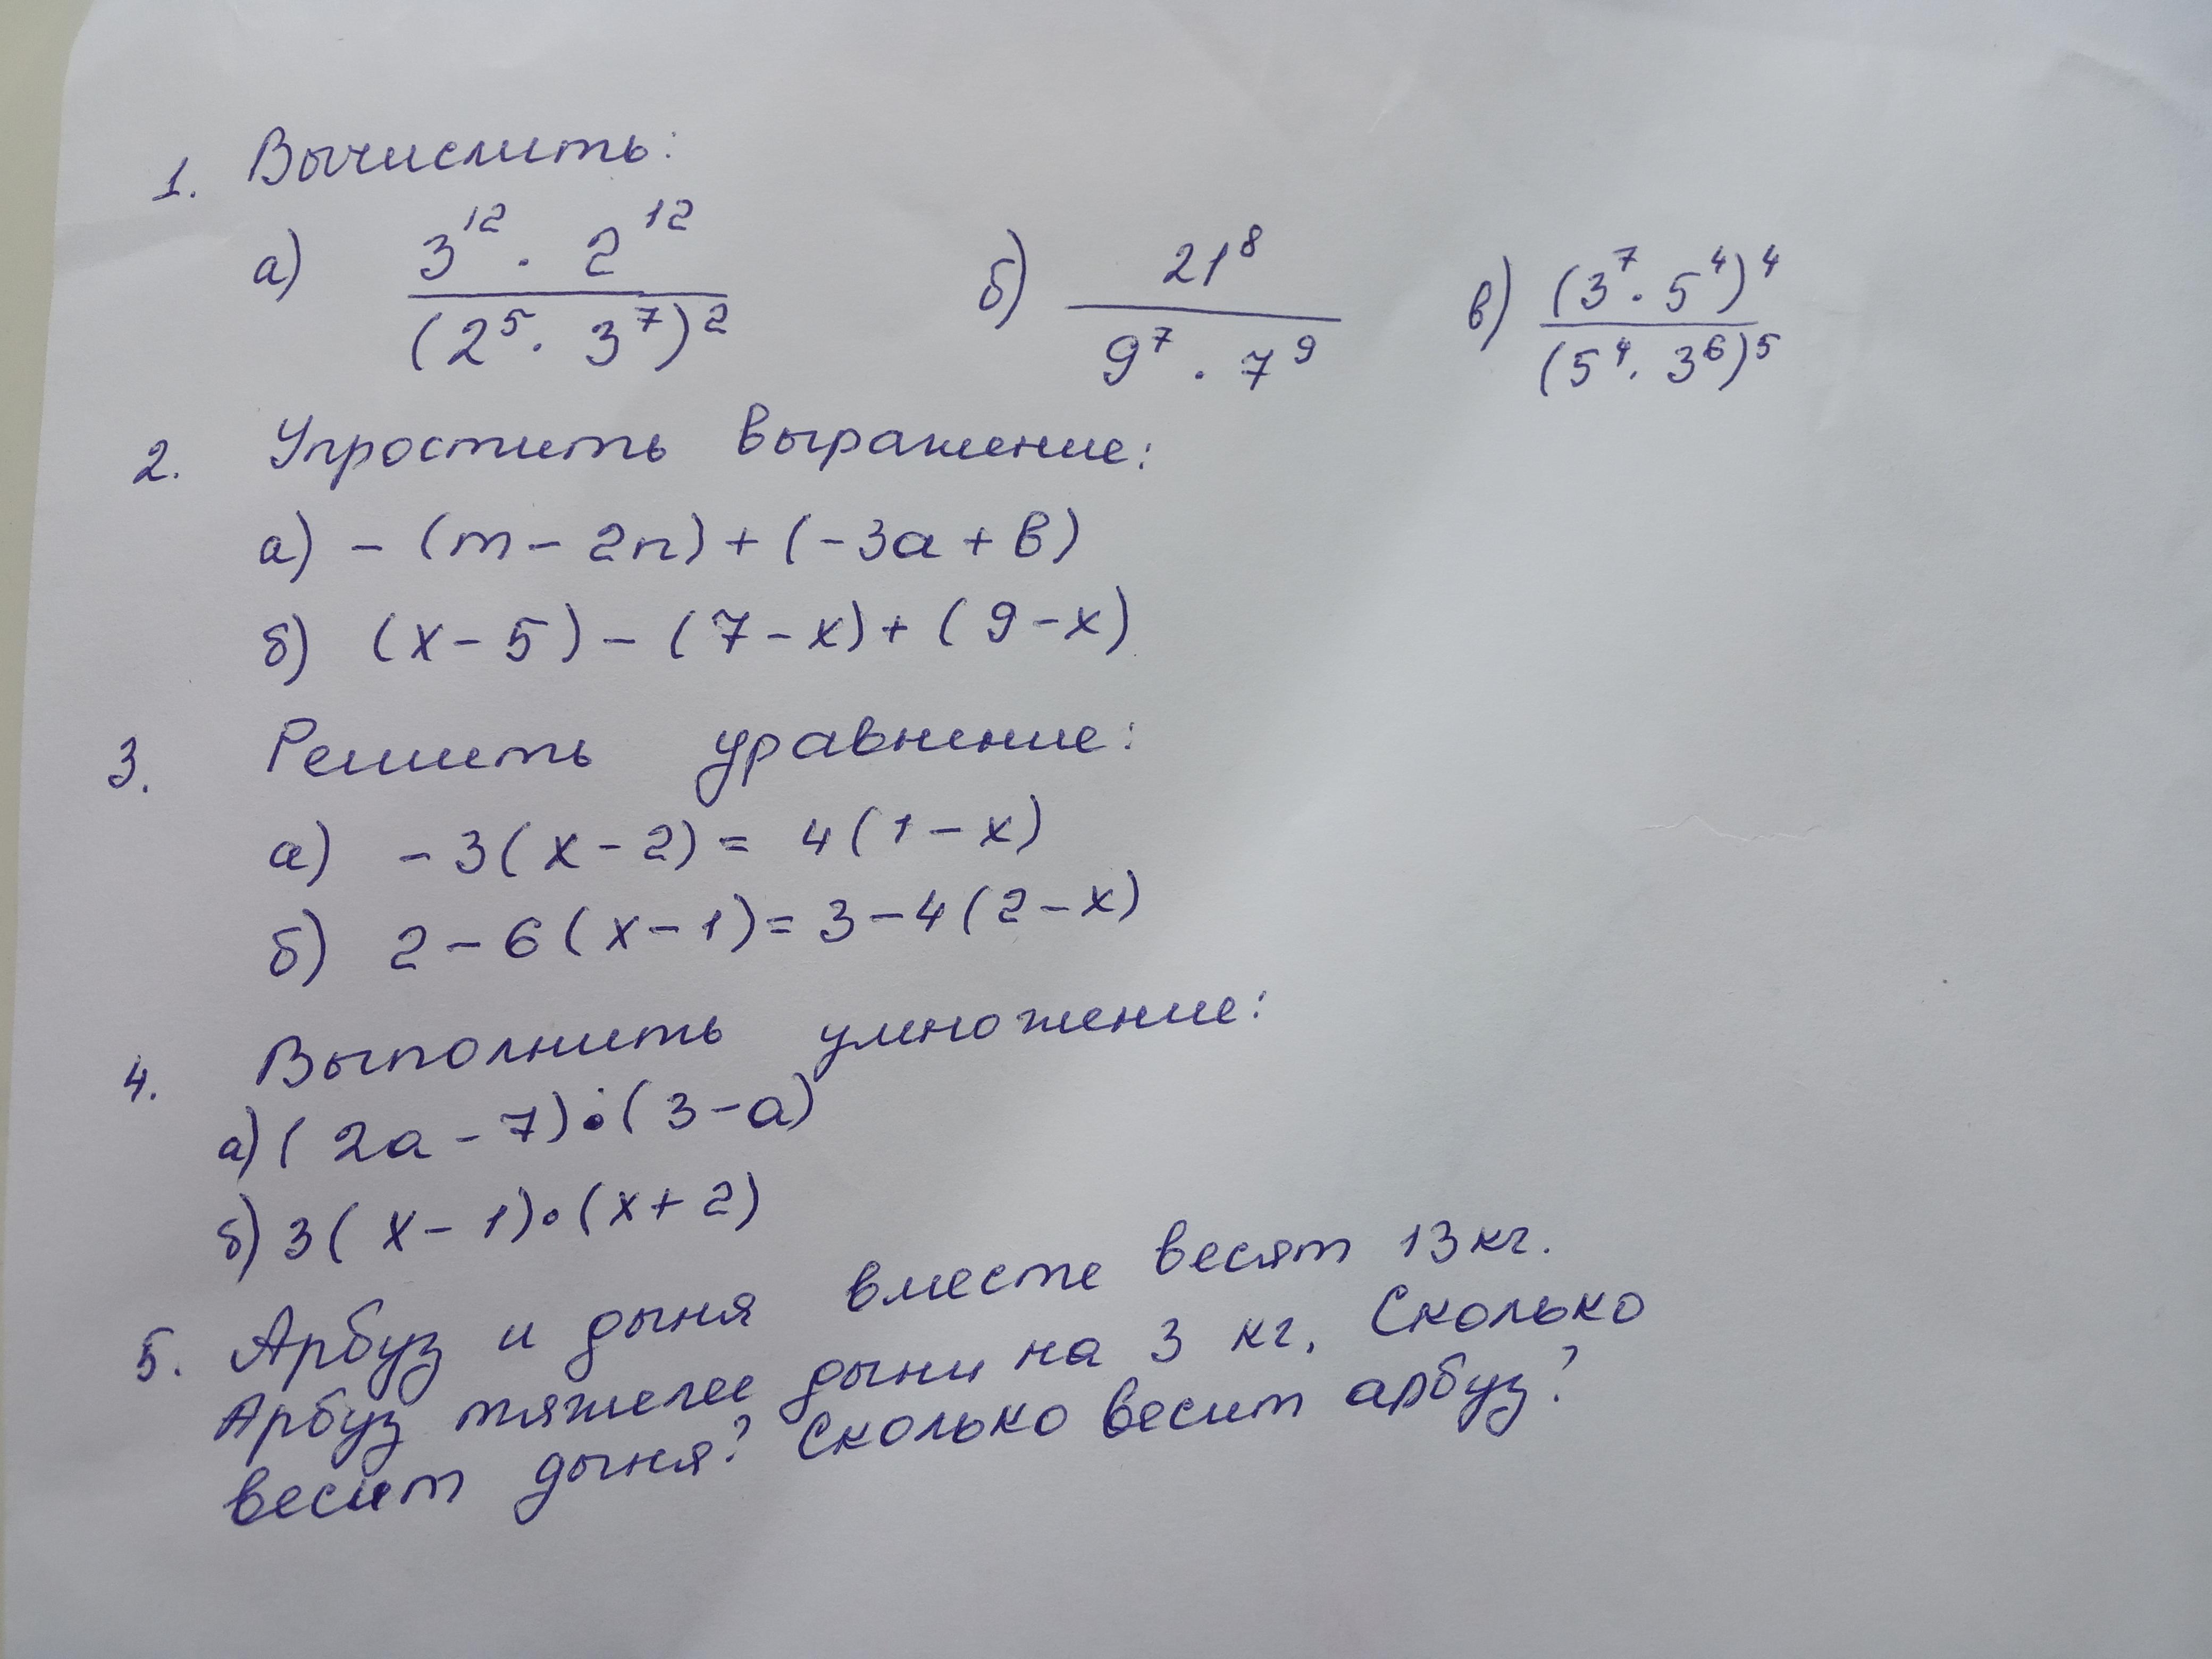 1. Вычислить:
а) (3^12 · 2^12)/((2^5 · 3^7)^2) б) 21^8/(9^7 · 7^9) в) ((3^7 · 5^4)^4)/((5^4 · 3^6)^5)
2. Упростить выражение:
а) - (m - 2n) + (-3a + b)
б) (x - 5) - (7 - x) + (9 - x)
3. Решить уравнение:
а) - 3(x - 2) = 4(1 - x)
б) 2 - 6(x - 1) = 3 - 4(2 - x)
4. Выполнить умножение:
а) (2a - 7) · (3 - a)
б) 3(x - 1) · (x + 2)
5. Арбуз и дыня вместе весят 13 кг.
Арбуз тяжелее дыни на 3 кг. Сколько
весит дыня? Сколько весит арбуз?